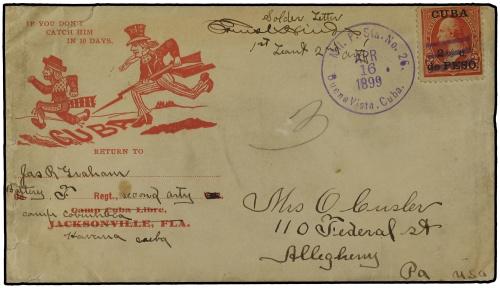 IF YOU DON'T
CATCH HIM
IN 10 DAYS,
CUBA
RETURN TO
Jas R Graham
Battery F Regt., second arty
Camp Cuba Libre,
camp Columbia
JACKSONVILLE, FLA.
Havana cuba
Solder Letter
1st Lieut 2
Mil. P. Sta. No. 26.
APR
16
1899
Buena Vista, Cuba.
CUBA
2 c.
de PESO
3
Mrs O Cusler
110 Federal st
Allegheny
Pa USA